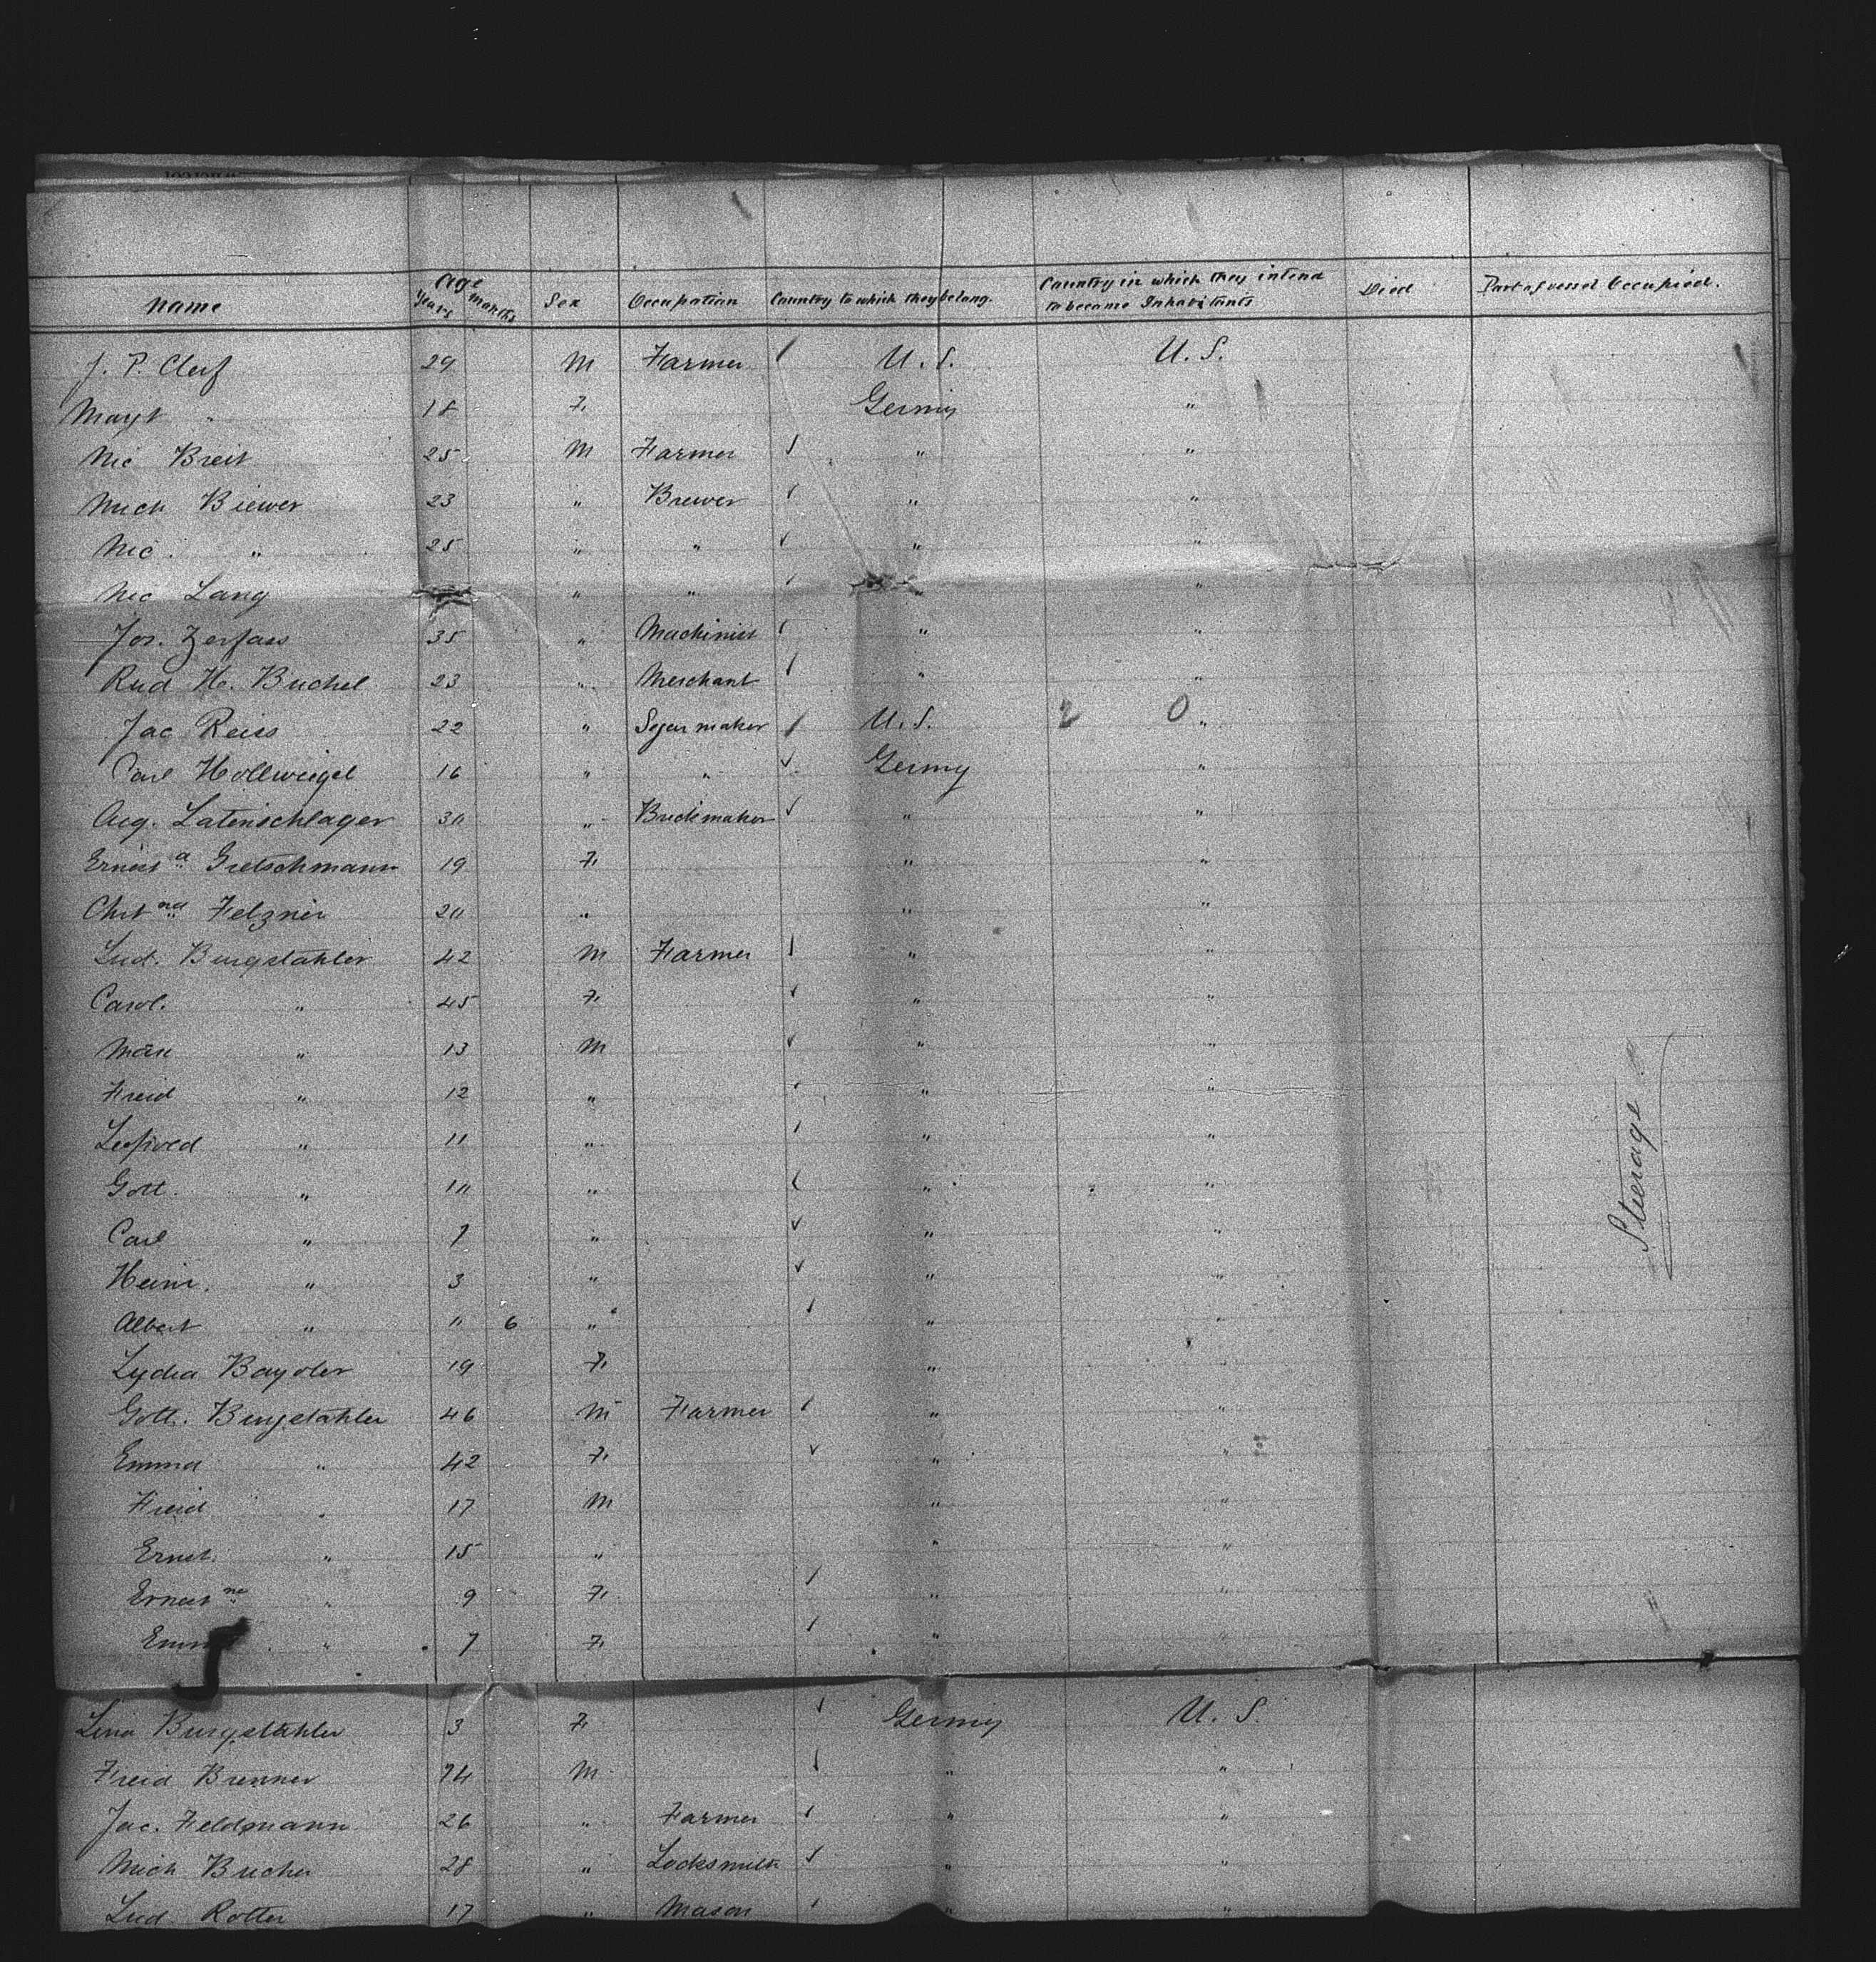 Name Age Years Months Sex Occupation Country to which they belong. Country in which they intend to become Inhabitants Died Part of vessel Occupied.
J. P. Clerf 29 M Farmer U. S. U. S.
Mayt " 18 F. Germy "
Nic Breit 25 M Farmer " "
Mich Biewer 23 " Brewer " "
Nic. " 25 " " " "
Nic Lang " " " "
Jos. Zerfass 35 " Machinist " "
Rud H. Buchel 23 " Merchant " "
Jac Reiss 22 " Segar maker U. S. 2 0 "
Carl Hollweigel 16 " " Germy "
Aug. Latenschlager 30 " Brickmaker " "
Ernest a Gretschmann 19 F. " "
Christ na Felzner 20 " " "
Lud. Burgstahler 42 M Farmer " "
Carol. " 45 F. " "
Max " 13 M " "
Freid " 12 " " "
Leopold " 11 " " "
Gott. " 10 " " "
Carl " 7 " " "
Heinr. " 3 " " "
Albert " " 6 " " "
Lydia 19 F. " "
Gott. Burgstahler 46 M Farmer " "
Emma " 42 F. " "
Freid " 17 M " "
Ernst. " 15 " " "
Ernest ne " 9 F. " "
Emma " 7 F. " "
Steerage
Lena Burgstahler 3 F. Germy U. S.
Freid Brenner 74 M " "
Jac. Feldmann 26 " Farmer " "
Mich Bucher 28 " Locksmith " "
Lud Rotter 17 " Mason " "